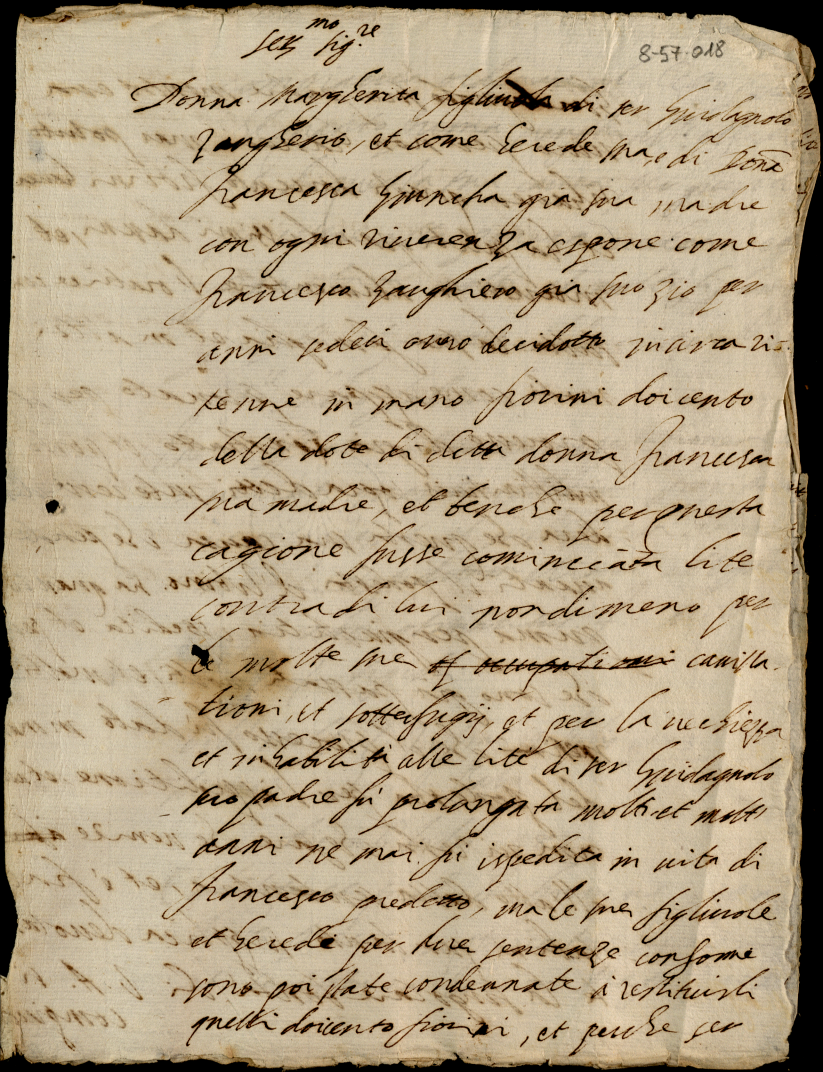 Ser.mo Sig.re
8-57-018
Donna Margherita figliuola di ser Guidagnolo
Zangherio, et come herede sua, e di Dona
Francesca Giuncha già sua madre
con ogni riverenza espone come
Francesco Zanghiero già suo zio per
anni sedeci overo decidotto incirca ri-
tenne in mano fiorini doicento
della dote di detta donna Francesca
sua madre, et benche per questa
cagione fusse cominciata lite
contra di lui nondimeno per
le molte sue occupationi cavilla-
tioni, et sotterfugij, et per la vechiezza
et inhabilità alle lite di ser Guidagnolo
suo padre fù prolongata molti et molti
anni ne mai fù ispedita in vita di
Francesco predetto, ma le sue figliuole
et herede per due sentenze conforme
sono poi state condennate à restituirli
quelli doicento fiorini, et perche ser